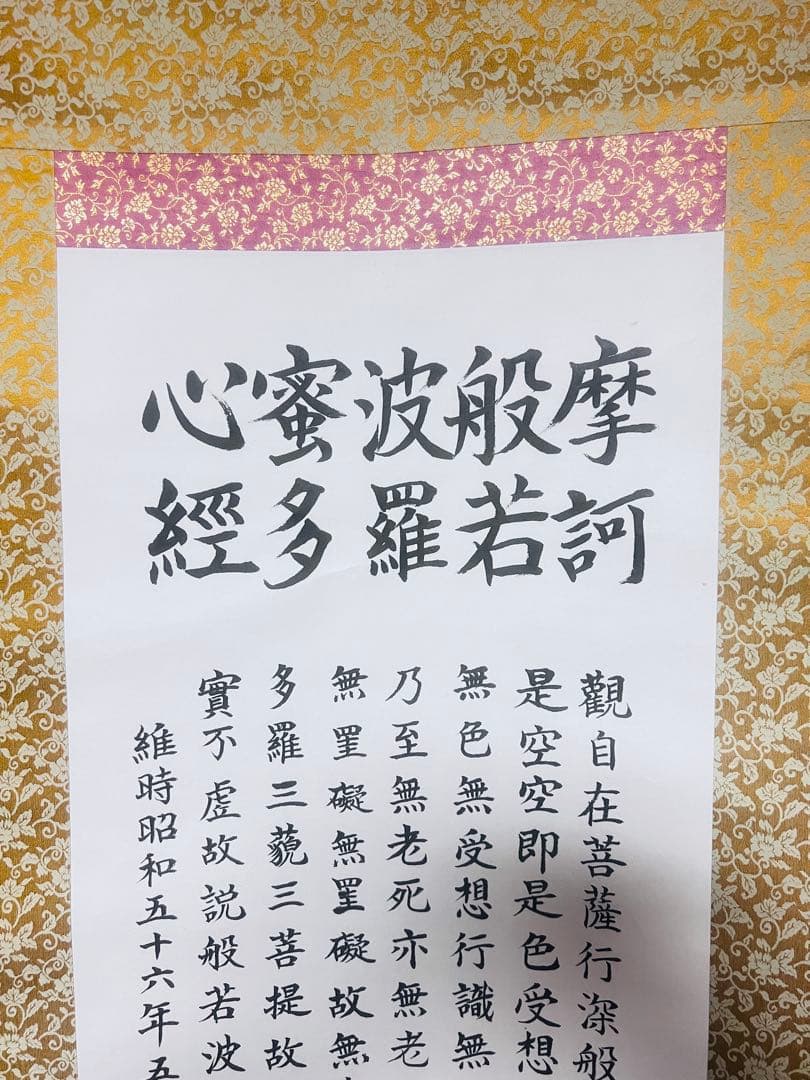 摩訶
般若
波羅
蜜多
心經
觀自在菩薩行深般
是空空即是色受想
無色無受想行識無
乃至無老死亦無老
無罣礙無罣礙故無
多羅三藐三菩提故
實不虛故説般若波
維時昭和五十六年五